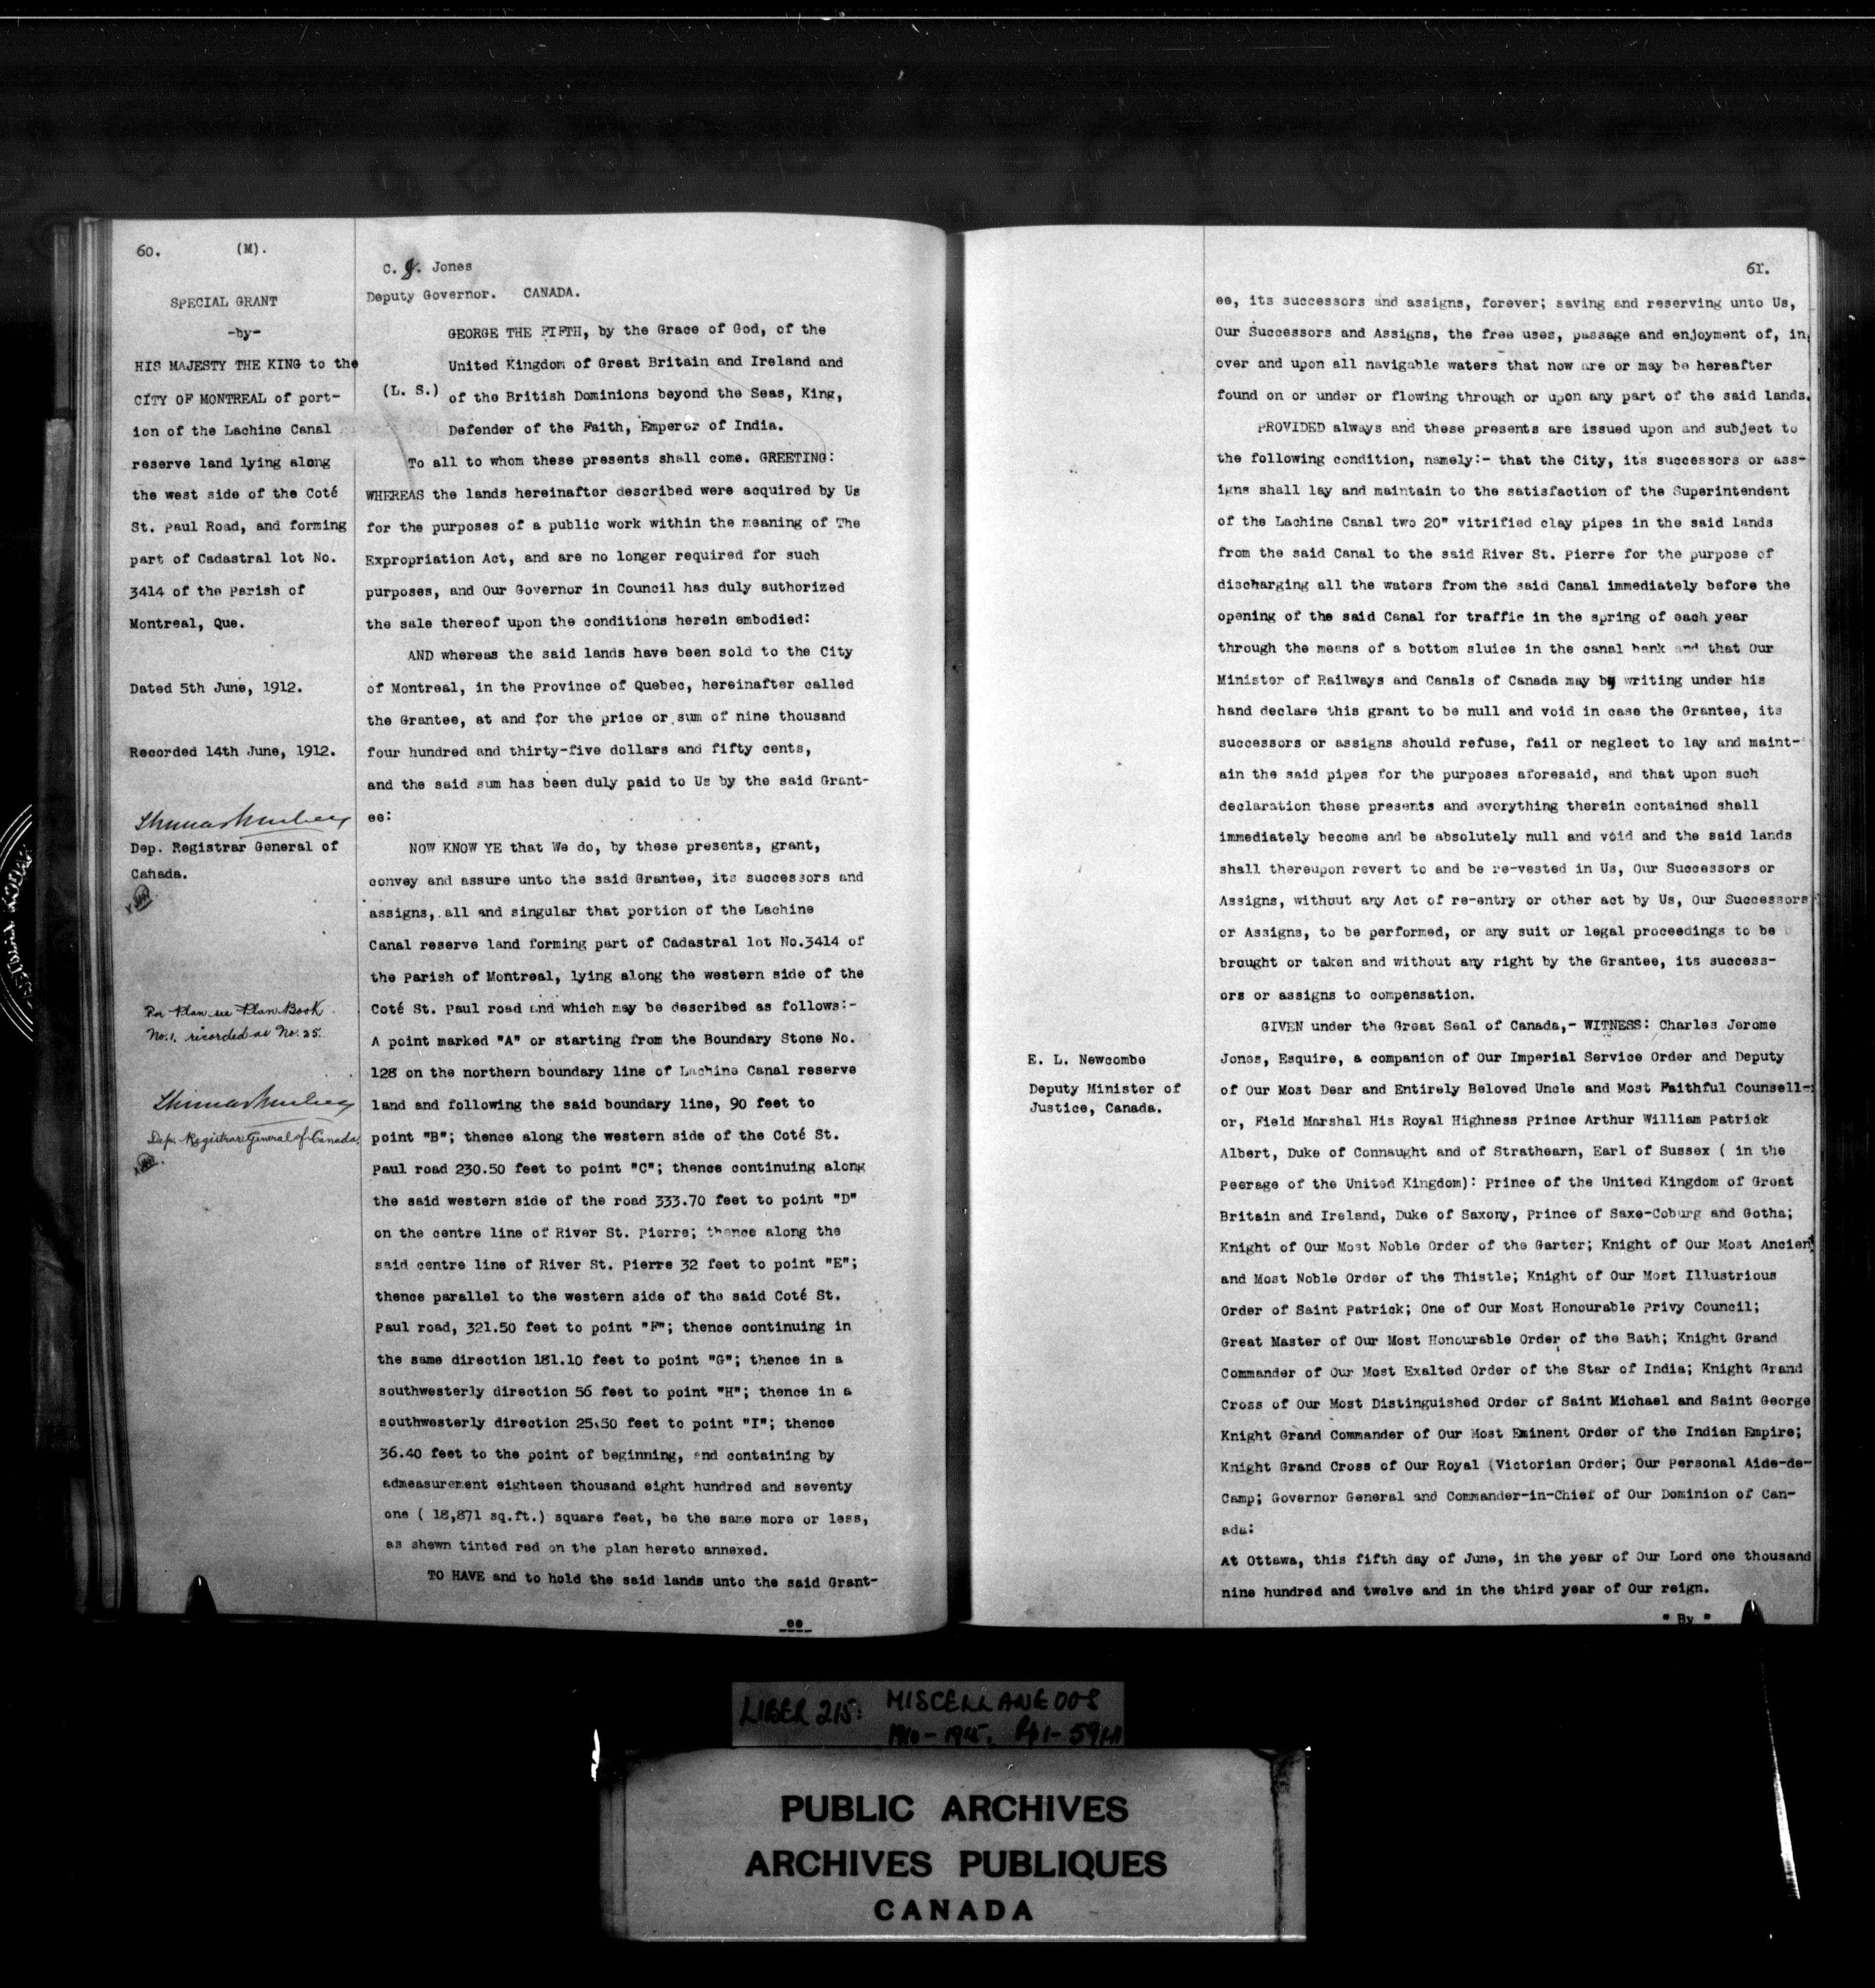 60. (M).
SPECIAL GRANT
-by-
HIS MAJESTY THE KING to the
CITY OF MONTREAL of port-
ion of the Lachine Canal
reserve land lying along
the west side of the Coté
St. Paul Road, and forming
part of Cadastral lot No.
3414 of the Parish of
Montreal, Que.
Dated 5th June, 1912.
Recorded 14th June, 1912.
Dep. Registrar General of
Canada.
For Plan see Plan Book
No. 1. recorded as No. 25.
Dep. Registrar General of Canada.
C. J. Jones
Deputy Governor. CANADA.
GEORGE THE FIFTH, by the Grace of God, of the
United Kingdom of Great Britain and Ireland and
(L. S.) of the British Dominions beyond the Seas, King,
Defender of the Faith, Emperor of India.
To all to whom these presents shall come. GREETING:
WHEREAS the lands hereinafter described were acquired by Us
for the purposes of a public work within the meaning of The
Expropriation Act, and are no longer required for such
purposes, and Our Governor in Council has duly authorized
the sale thereof upon the conditions herein embodied:
AND whereas the said lands have been sold to the City
of Montreal, in the Province of Quebec, hereinafter called
the Grantee, at and for the price or sum of nine thousand
four hundred and thirty-five dollars and fifty cents,
and the said sum has been duly paid to Us by the said Grant-
ee:
NOW KNOW YE that We do, by these presents, grant,
convey and assure unto the said Grantee, its successors and
assigns, all and singular that portion of the Lachine
Canal reserve land forming part of Cadastral lot No.3414 of
the Parish of Montreal, lying along the western side of the
Coté St. Paul road and which may be described as follows:-
A point marked "A" or starting from the Boundary Stone No.
128 on the northern boundary line of Lachine Canal reserve
land and following the said boundary line, 90 feet to
point "B"; thence along the western side of the Coté St.
Paul road 230.50 feet to point "C"; thence continuing along
the said western side of the road 333.70 feet to point "D"
on the centre line of River St. Pierre; thence along the
said centre line of River St. Pierre 32 feet to point "E";
thence parallel to the western side of the said Coté St.
Paul road, 321.50 feet to point "F"; thence continuing in
the same direction 181.10 feet to point "G"; thence in a
southwesterly direction 56 feet to point "H"; thence in a
southwesterly direction 25.50 feet to point "I"; thence
36.40 feet to the point of beginning, and containing by
admeasurement eighteen thousand eight hundred and seventy
one ( 18,871 sq.ft.) square feet, be the same more or less,
as shewn tinted red on the plan hereto annexed.
TO HAVE and to hold the said lands unto the said Grant-
ee
61.
ee, its successors and assigns, forever; saving and reserving unto Us,
Our Successors and Assigns, the free uses, passage and enjoyment of, in,
over and upon all navigable waters that now are or may be hereafter
found on or under or flowing through or upon any part of the said lands.
PROVIDED always and these presents are issued upon and subject to
the following condition, namely:- that the City, its successors or ass-
igns shall lay and maintain to the satisfaction of the Superintendent
of the Lachine Canal two 20" vitrified clay pipes in the said lands
from the said Canal to the said River St. Pierre for the purpose of
discharging all the waters from the said Canal immediately before the
opening of the said Canal for traffic in the spring of each year
through the means of a bottom sluice in the canal bank and that Our
Minister of Railways and Canals of Canada may by writing under his
hand declare this grant to be null and void in case the Grantee, its
successors or assigns should refuse, fail or neglect to lay and maint-
ain the said pipes for the purposes aforesaid, and that upon such
declaration these presents and everything therein contained shall
immediately become and be absolutely null and void and the said lands
shall thereupon revert to and be re-vested in Us, Our Successors or
Assigns, without any Act of re-entry or other act by Us, Our Successors
or Assigns, to be performed, or any suit or legal proceedings to be
brought or taken and without any right by the Grantee, its success-
ors or assigns to compensation.
E. L. Newcombe
Deputy Minister of
Justice, Canada.
GIVEN under the Great Seal of Canada,- WITNESS: Charles Jerome
Jones, Esquire, a companion of Our Imperial Service Order and Deputy
of Our Most Dear and Entirely Beloved Uncle and Most Faithful Counsell-
or, Field Marshal His Royal Highness Prince Arthur William Patrick
Albert, Duke of Connaught and of Strathearn, Earl of Sussex ( in the
Peerage of the United Kingdom): Prince of the United Kingdom of Great
Britain and Ireland, Duke of Saxony, Prince of Saxe-Coburg and Gotha;
Knight of Our Most Noble Order of the Garter; Knight of Our Most Ancient
and Most Noble Order of the Thistle; Knight of Our Most Illustrious
Order of Saint Patrick; One of Our Most Honourable Privy Council;
Great Master of Our Most Honourable Order of the Bath; Knight Grand
Commander of Our Most Exalted Order of the Star of India; Knight Grand
Cross of Our Most Distinguished Order of Saint Michael and Saint George
Knight Grand Commander of Our Most Eminent Order of the Indian Empire;
Knight Grand Cross of Our Royal (Victorian Order; Our Personal Aide-de-
Camp; Governor General and Commander-in-Chief of Our Dominion of Can-
ada:
At Ottawa, this fifth day of June, in the year of Our Lord one thousand
nine hundred and twelve and in the third year of Our reign.
" By "
LIBER 215: MISCELLANEOUS
PUBLIC ARCHIVES
ARCHIVES PUBLIQUES
CANADA